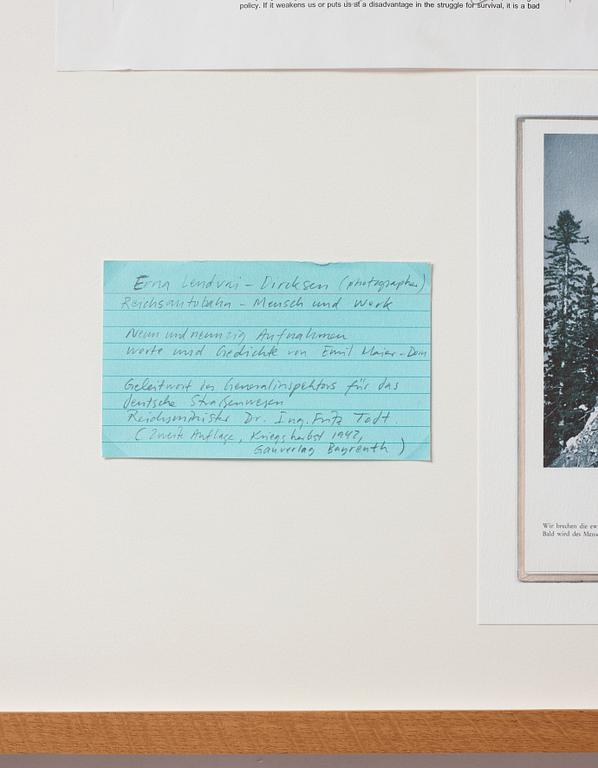 policy. If it weakens us or puts us at a disadvantage in the struggle for survival, it is a bad
Erna Lendvai - Dircksen (photographer)
Reichsautobahn - Mensch und Werk
Neun und neunzig Aufnahmen
Worte und Gedichte von Emil Maier-Dorn
Geleitwort des Generalinspektors für das
deutsche Straßenwesen
Reichsminister Dr. Ing. Fritz Todt.
(Zweite Auflage, Kriegsherbst 1942,
Gauverlag Bayreuth )
Wir brechen die ew
Bald wird des Mens